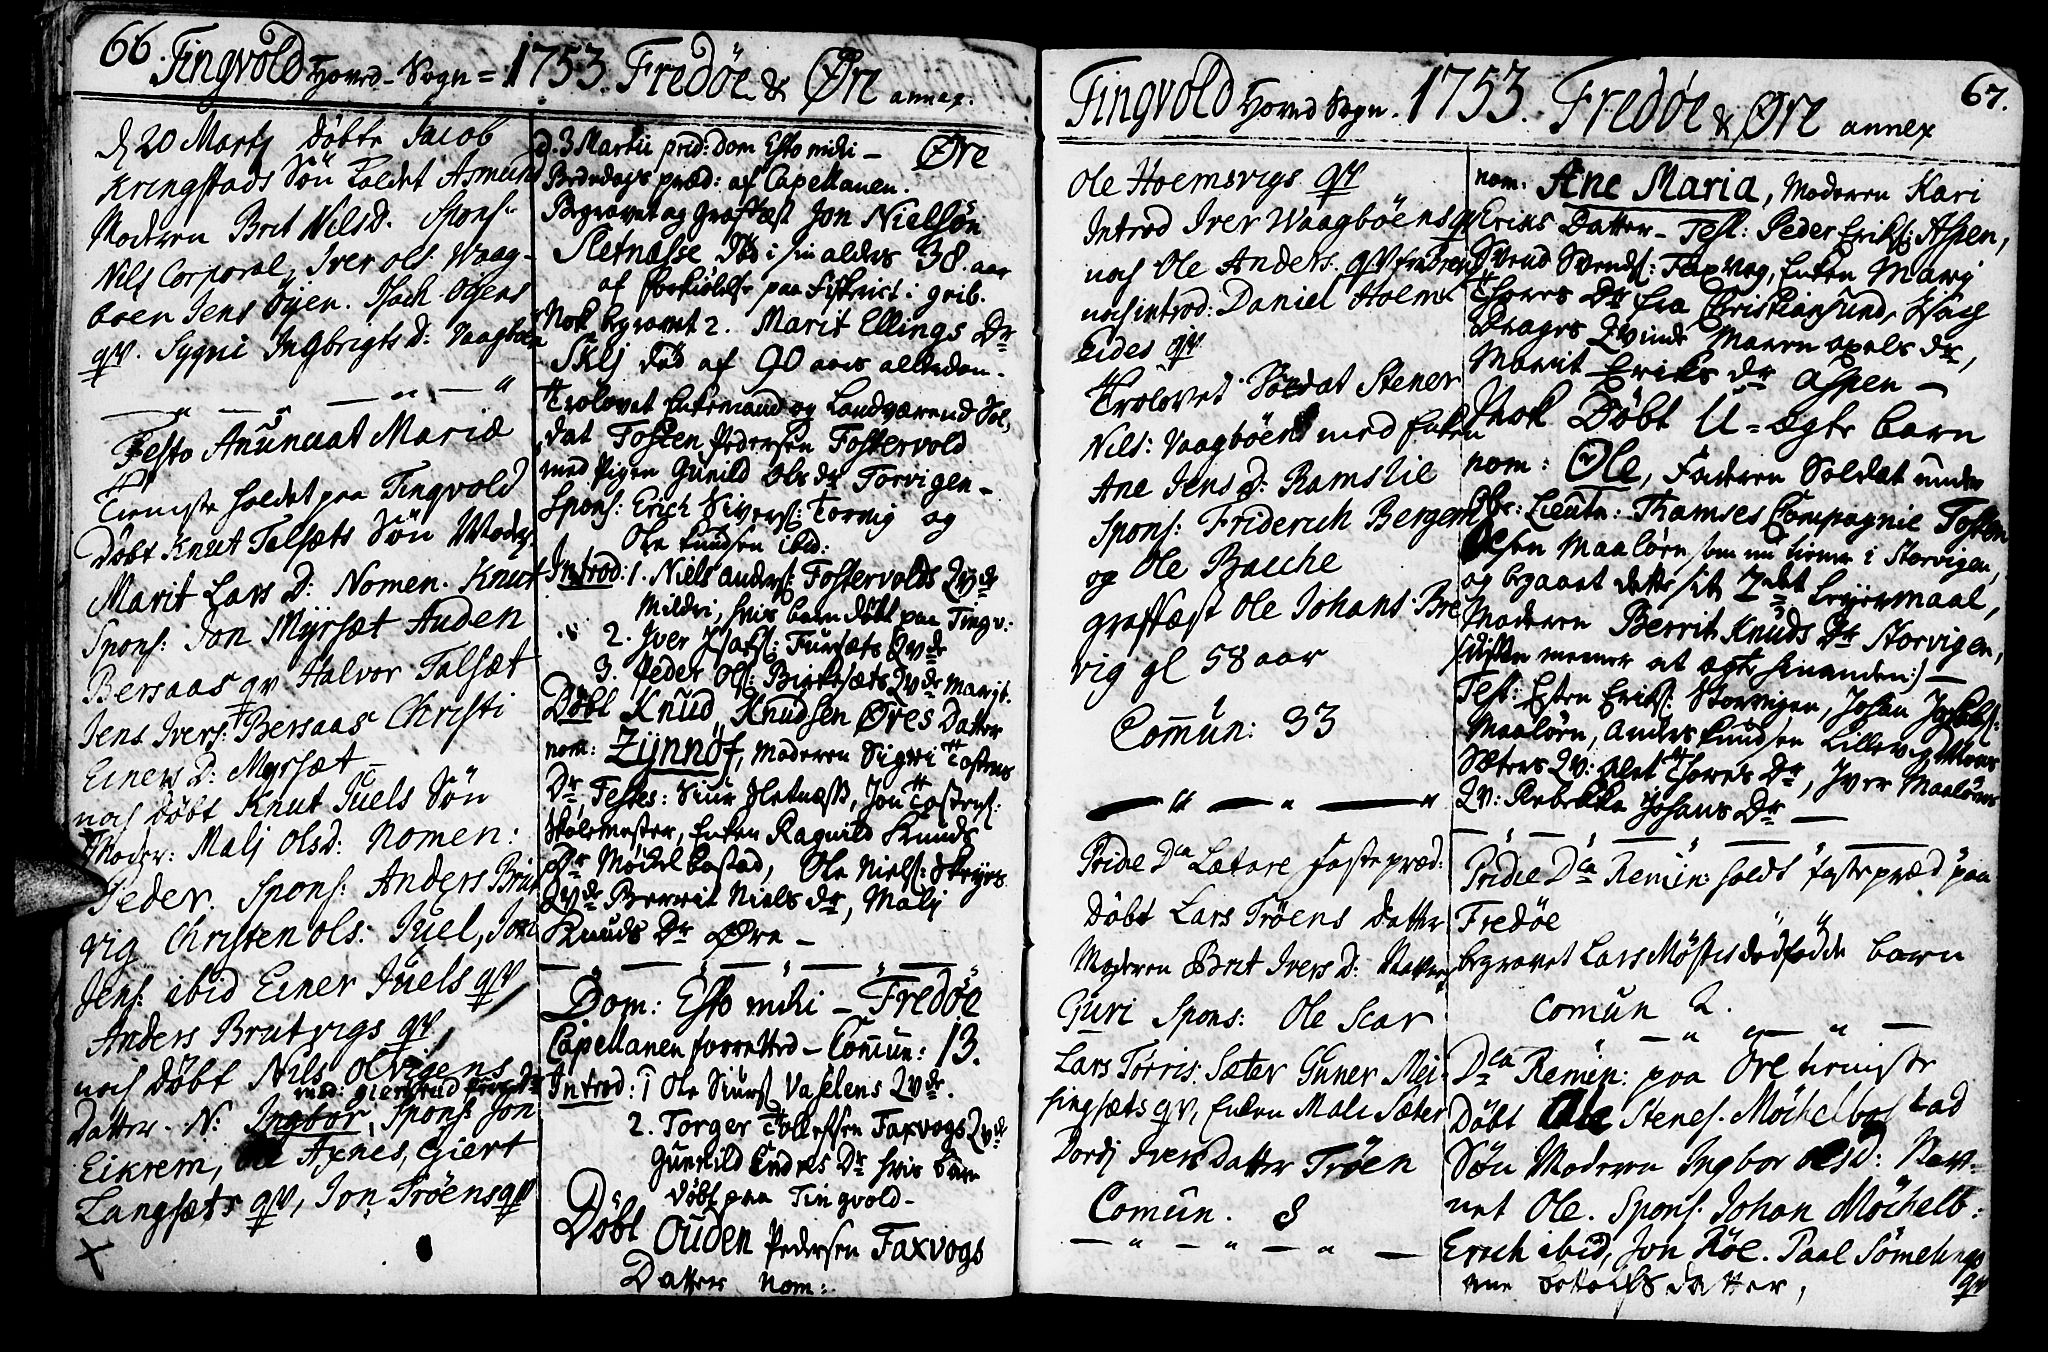 66. Tingvold Hoved-Sogn = 1753. Fredöe & Øre annex.
d 20 Martj Döbte Jacob
Kringstads Sön kaldet Asmund
Moderen Brit Nilsd. Spons:
Nils Corporal, Iver ols: Waag-
boen Jens Öyen. Isach Öyens
qv. Sygni Ingbrigts d: Vaagboen
Festo Anunciat Mariæ
Tieniste holdet paa Tingvold
Döbt Knut Talsæts Sön Moder
Marit Lars D: Nomen. Knut
Spons: Jon Myrsæt Auden
Bersaas qv Halvor Talsæt
Jens Ivers: Bersaas Christi
Einers D: Myrsæt -
noch döbt Knut Juels Sön
Moder: Malj olsd: Nomen:
Peder. Spons: Anders Brut
vig Christen ols: Juel, Jon
Jens: ibid Einer Juels qv
Anders Brutvigs qv
noch Döbt Nils Olvigens
Datter. N: Ingbor, Spons: Jon
Eikrem, Axnes, Giert
Langsæts qv, Jon Tröens qv
d. 3 Martii prid: Dom Esto mihi - Øre
Bededags præd: af Capellanen.
Begravet og Graffæst Jon Nielsön
Sletnasse Död i sin alders 38. aar
af forkiölelse paa Fiskeriet i grib.
Nok begravet 2. Marit Ellings Dr
Sklj död af 90 aars alderdom.
Trolovet Enkemand og Landværend Sol,
dat Tosten Pedersen Fostervold
med Pigen Gunild Ols Dr Torvigen -
Spons: Erich Sivers: Torvig og
Ole Knudsen ibid:
Introd: 1. Niels anders: Fostervolds Qvde
Mildri, hvis barn döbt paa Tingv:
2. Iver Isaks: Fursæts Qvde
3. Peder Ols: Birkesæts Qvde Marit.
Döbt Knud Knudsen Øres Datter
nom: Zynnöf, Moderen Sigri Tostens
Dr, Testes: Siur Sletnæss, Jon Tostens:
Skolemester, Enken Ragnild Knuds
Dr Möckelbostad, Ole Niels: Skeyes
Qvde Berrit Niels dr, Malj
Knuds Dr Øre -
Dom: Esto mihi - Fredöe
Capellanen forretted - Com̄un: 13.
Introd: 1 Ole Siurs Vaslens Qvde.
2. Torger Tollefsen Faxvogs Qvde
Gunhild Endres Dr hvis barn
döbt paa Tingvold -
Döbt Ouden Pedersen Faxvogs
Datter nom:
Tingvold Hoved Sogn. 1753. Fredöe & Øre annex 67.
Ole Hoemsvigs qv
Introd Iver Waagböens qv
noch Ole Anders. qv
noch introd: Daniel Holm
Eides qv
Trolovet Soldat Stener
Nils: Vaagböen med Enken
Ane Jens D: Ramslie
Spons: Friderich Bergem
og Ole Bacche
graffæst Ole Johans: Bre
vig gl 58 aar
Com̄un: 33
Pridie Dca Lætare fastepræd:
Döbt Lars Tröens Datter
Moderen Brit Ivers D: Navnet
Guri Spons: Ole Scar
Lars Torris: Sæter Guner Mei-
singsæts qv, Enken Mali Sæter
Dordj Ivers Datter Tröen
Comun. 8
nom. Ane Maria, Moderen Kari
Eriks Datter - Test: Peder Eriks: Aspen,
Svend Svends: Faxvog, Enken Marj
Thores Dr fra Christiansund, Isach
Drages Qvinde Maren axels dr,
Marit Eriks dr aspen -
Nok Döbt U=ægte barn
nom: Ole, Faderen Soldat under
Obr: Lieutn: Thamses Compagnie Tosten
Olsen Maalörn som nu tiener i Storvigen,
og begaaet dette sit 2det Leyermaal,
Moderen Berrit Knuds Dr Storvigen,
(disse meener at ægte hinanden:) -
Test: Esten Eriks: Storvigen, Johan Jachobs:
Maalörn, anders Knudsen Lillevig, Mons
Sæters Qv: Olet Thores Dr, Iver Maalörns
Qv: Rebekka Johans Dr -
Pridie Dca Remin: holdt fastepræd paa
Fredöe
begravet Lars Möstes dödfödde barn
Comun 2.
Dca Remin: paa Öre tieniste
Döbt Ole Stenes. Möchelbostad
Sön Moderen Ingbor olsD: Nav-
net Ole. Spons. Johan Möchelb:
Erich ibid, Jon Röe. Paal Sömelings
qv